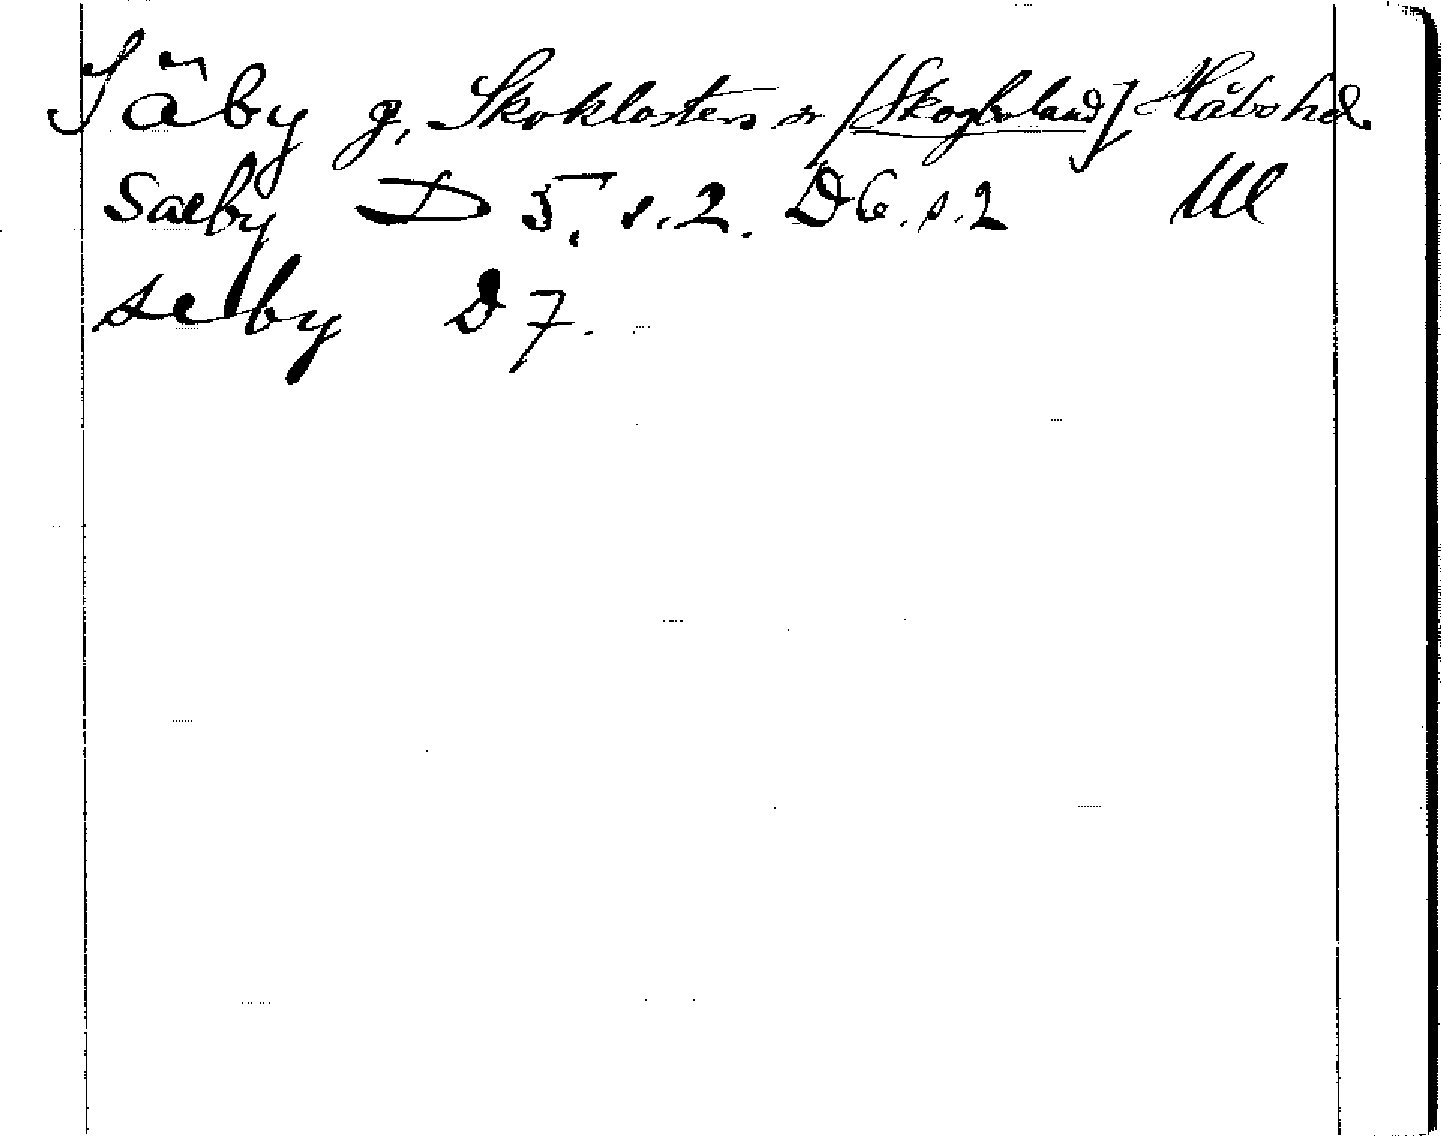 Säby g, Skoklosters sn [Skogboland] Håbo hd.
Saeby D 5. s. 2. D 6. s. 2 Ul
seby D 7.